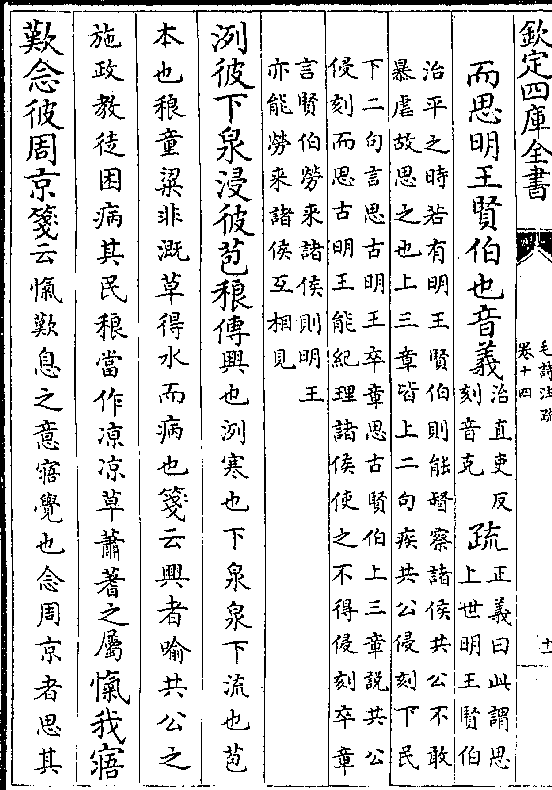 欽定四庫全書
毛詩注疏
卷十四
十一
而思明王賢伯也音義
治直吏反
刻音克
疏
正義曰此謂思
上世明王賢伯
治平之時若有明王賢伯則能督察諸侯共公不敢
暴虐故思之也上三章皆上二句疾共公侵刻下民
下二句言思古明王卒章思古賢伯上三章說共公
侵刻而思古明王能紀理諸侯使之不得侵刻卒章
言賢伯勞來諸侯則明王
亦能勞來諸侯互相見
洌彼下泉浸彼苞稂傳興也洌寒也下泉泉下流也苞
本也稂童粱非溉草得水而病也箋云興者喻共公之
施政教徒困病其民稂當作凉凉草蕭蓍之屬愾我寤
歎念彼周京箋云愾歎息之意寤覺也念周京者思其